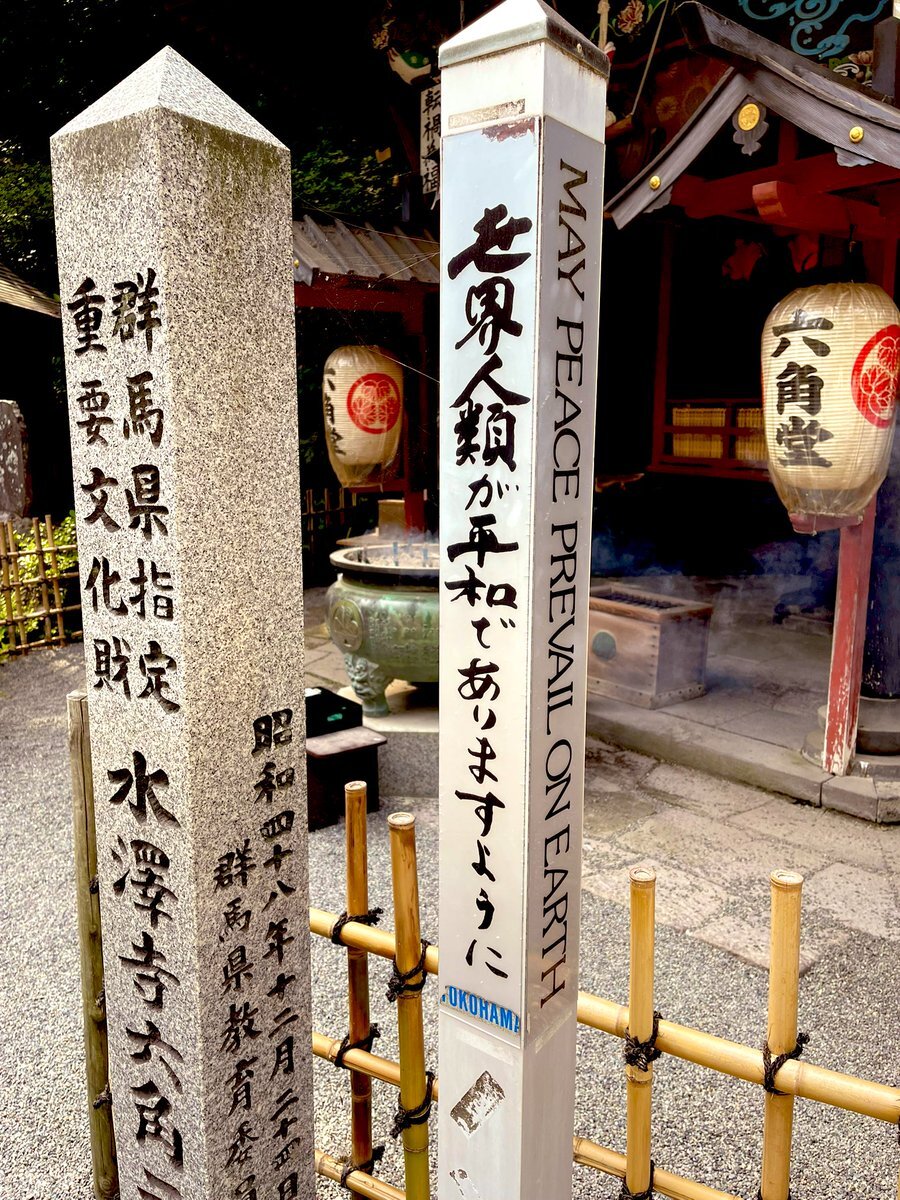 群馬県指定
重要文化財
水澤寺六角
昭和四十八年十二月二十四日
群馬県教育委員
世界人類が平和でありますように
MAY PEACE PREVAIL ON EARTH
YOKOHAMA
六角堂
六角堂